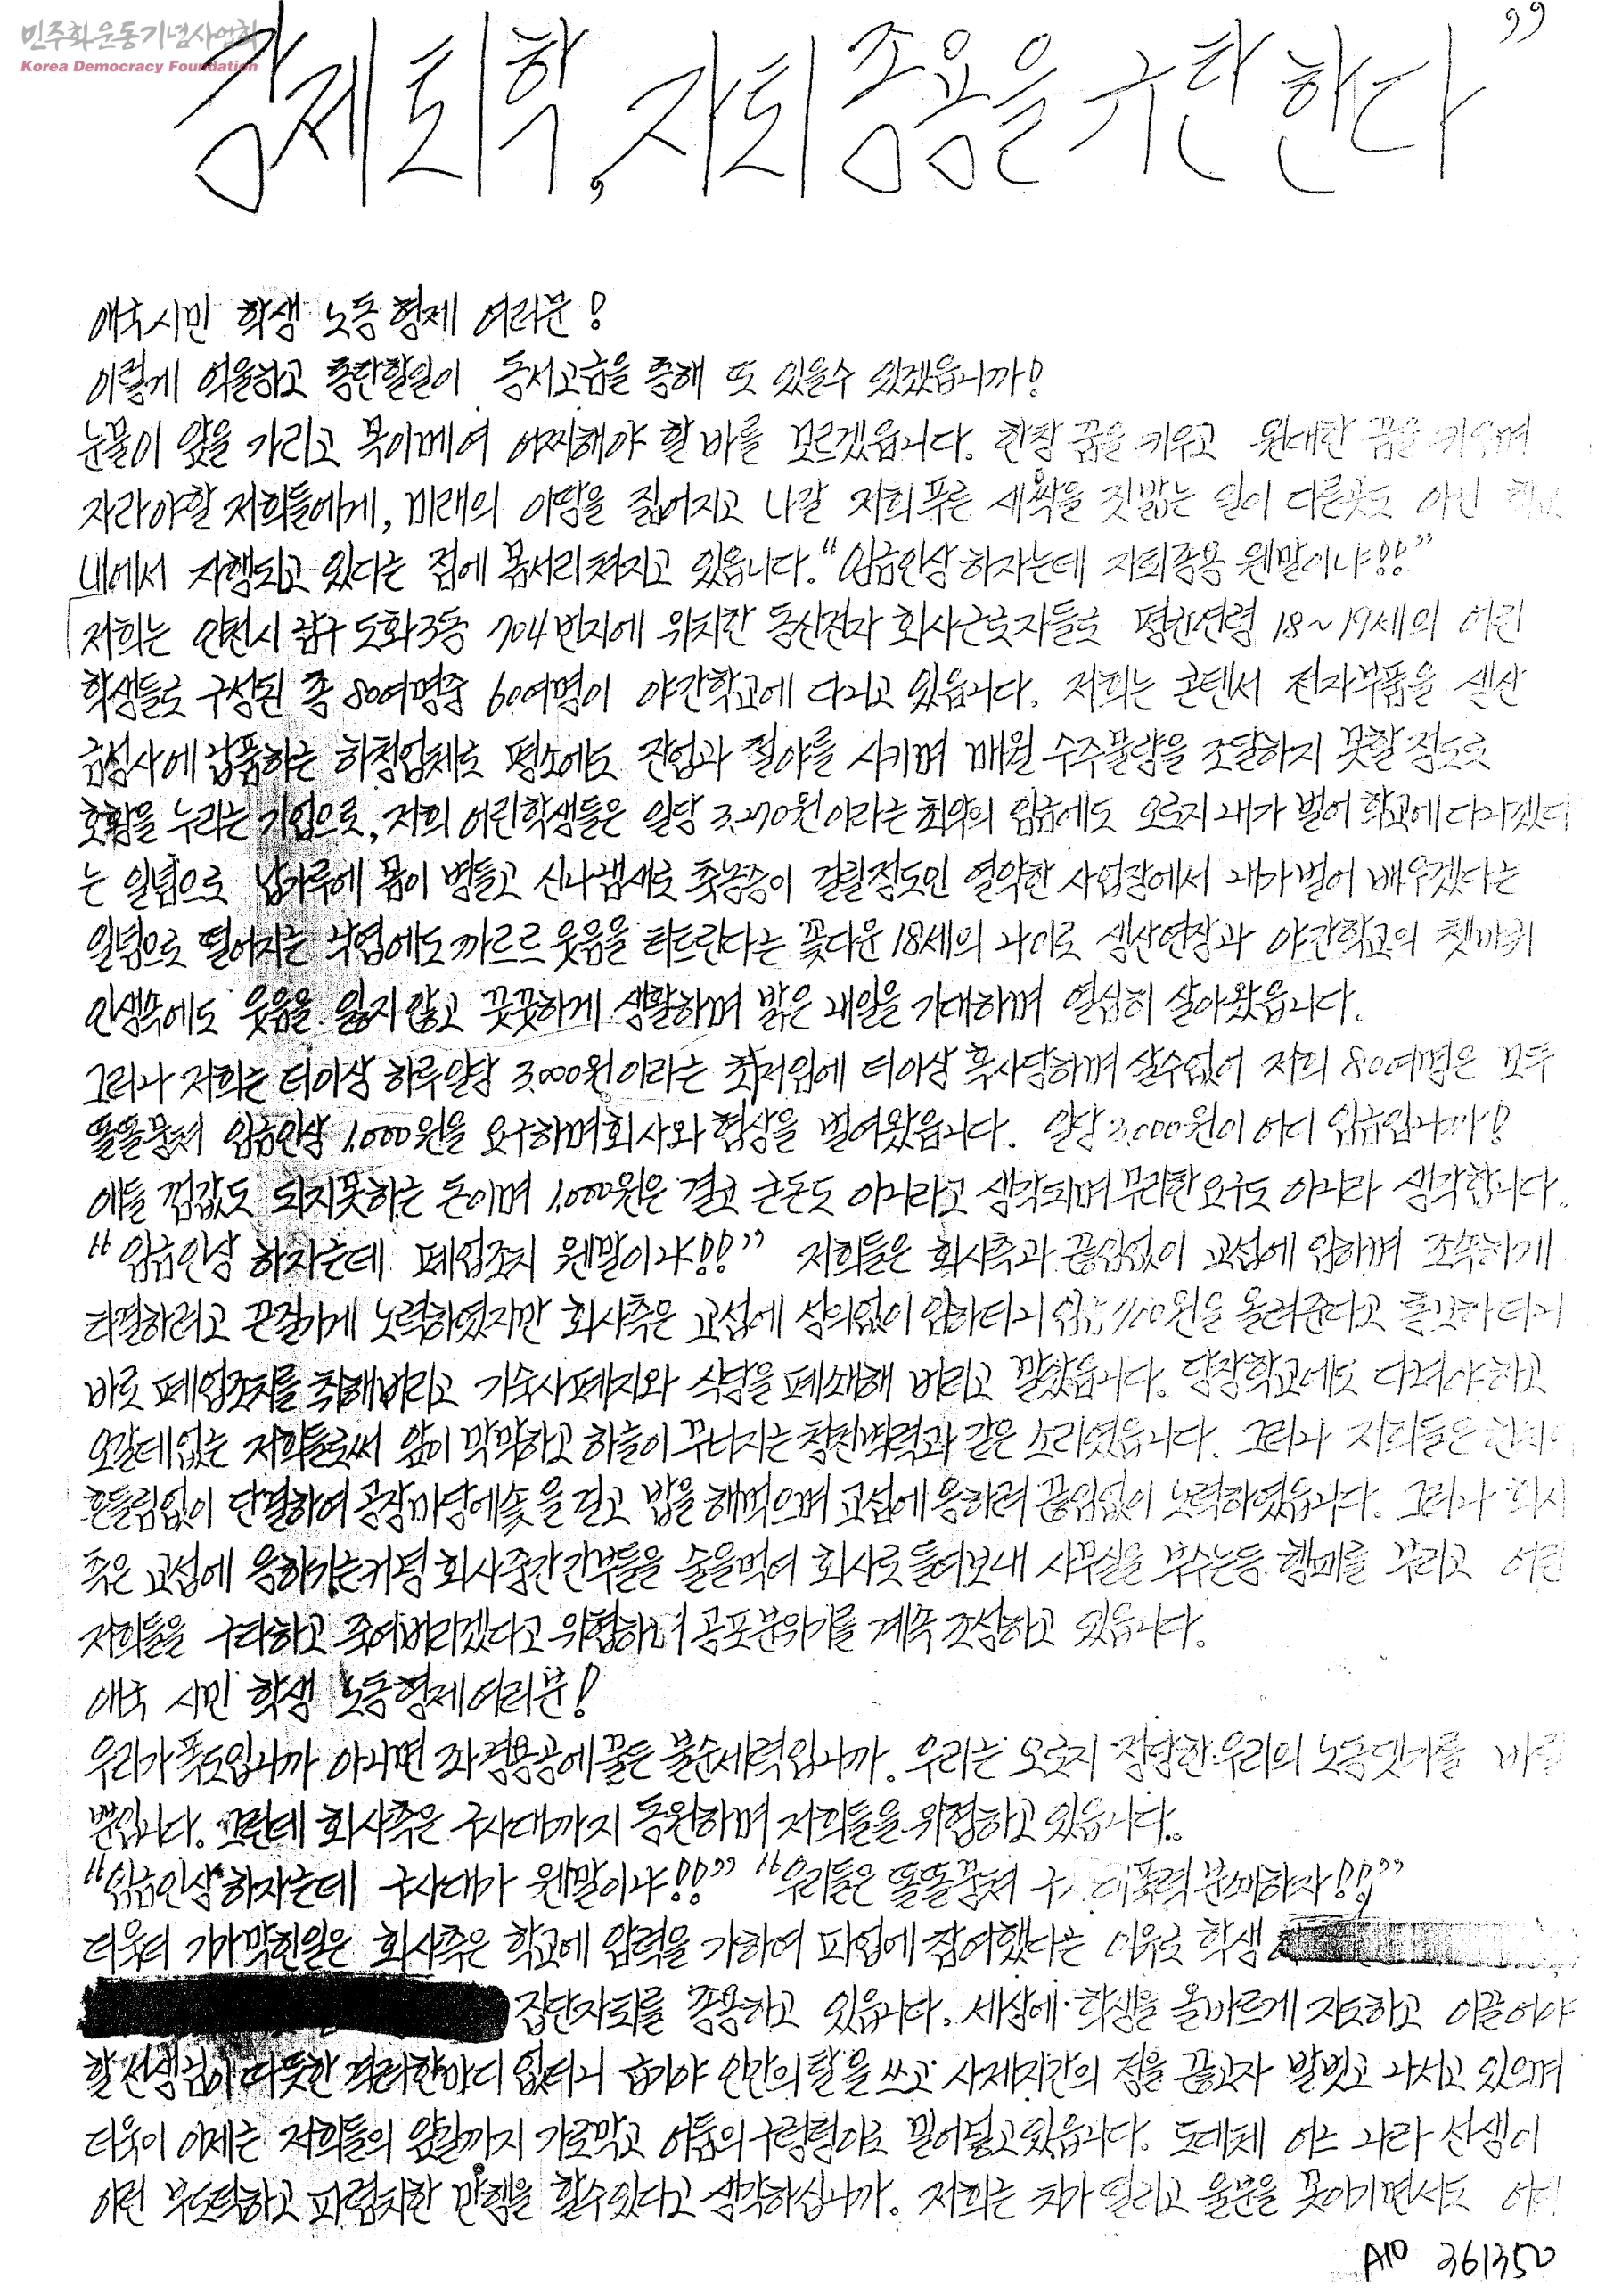 민주화운동기념사업회
Korea Democracy Foundation
강제퇴학, 자퇴종용을 규탄한다”
애국시민 학생 노동형제 여러분!
이렇게 억울하고 통탄할일이 동서고금을 통해 또 있을수 있겠읍니까!
눈물이 앞을 가리고 목이메여 어찌해야 할 바를 모르겠읍니다. 한창 꿈을 키우고 원대한 꿈을 키우며
자라야할 저희들에게, 미래의 이땅을 짊어지고 나갈 저희 푸른 새싹을 짓밟는 일이 다른곳도 아닌 학교
내에서 자행되고 있다는 점에 몸서리쳐지고 있읍니다. “임금인상 하자는데 자퇴종용 웬말이냐!!”
저희는 인천시 남구 도화3동 704번지에 위치한 동신전자 회사근로자들로 평균연령 18~19세의 어린
학생들로 구성된 총 80여명중 60여명이 야간학교에 다니고 있읍니다. 저희는 콘텐서 전자부품을 생산
금성사에 납품하는 하청업체로 평소에도 잔업과 철야를 시키며 매월 수주물량을 조달하지 못할 정도로
호황을 누리는 기업으로, 저희 어린학생들은 일당 3,270원이라는 최악의 임금에도 오로지 내가 벌어 학교에 다니겠다
는 일념으로 납가루에 몸이 병들고 신나냄새로 축농증이 걸릴정도인 열악한 사업장에서 내가벌어 배우겠다는
일념으로 떨어지는 낙엽에도 까르르 웃음을 터드린다는 꽃다운 18세의 나이로 생산현장과 야간학교의 쳇바퀴
인생속에도 웃음을 잃지 않고 꿋꿋하게 생활하며 밝은 내일을 기대하며 열심히 살아왔읍니다.
그러나 저희는 더이상 하루일당 3,000원이라는 최저임에 더이상 혹사당하며 살수없어 저희 80여명은 모두
똘똘뭉쳐 임금인상 1,000원을 요구하며 회사와 협상을 벌여왔읍니다. 일당 3,000원이 어디 임금입니까!
애들 껌값도 되지못하는 돈이며 1,000원은 결코 큰돈도 아니라고 생각되며 무리한 요구도 아니라 생각합니다.
“임금인상 하자는데 폐업조치 웬말이냐!!” 저희들은 회사측과 끊임없이 교섭에 임하며 조속하게
타결하려고 끈질기게 노력하였지만 회사측은 교섭에 성의없이 임하더니 임금 700원을 올려준다고 통보하더니
바로 폐업조치를 취해버리고 기숙사폐지와 식당을 폐쇄해 버리고 말았읍니다. 당장학교에도 다녀야하고
오갈데없는 저희들로써 앞이 막막하고 하늘이 무너지는 청천벽력과 같은 소리였읍니다. 그러나 저희들은 한치의
흔들림없이 단결하여 공장마당에솥을 걸고 밥을 해먹으며 교섭에 응하려 끊임없이 노력하였읍니다. 그러나 회사
측은 교섭에 응하기는커녕 회사중간간부들을 술을먹여 회사로 들여보내 사무실을 부수는등 행패를 부리고 어린
저희들을 구타하고 죽여버리겠다고 위협하며 공포분위기를 계속 조성하고 있읍니다.
애국 시민 학생 노동형제여러분!
우리가 폭도입니까 아니면 좌경용공에 물든 불순세력입니까. 우리는 오로지 정당한 우리의 노동댓가를 바랄
뿐입니다. 그런데 회사측은 구사대까지 동원하며 저희들을 위협하고 있읍니다.
“임금인상 하자는데 구사대가 웬말이냐!!” “우리들은 똘똘뭉쳐 구사대폭력 분쇄하자!!”
더욱더 기가막힌일은 회사측은 학교에 압력을 가하여 파업에 참여했다는 이유로 학생
집단자퇴를 종용하고 있읍니다. 세상에 학생을 올바르게 지도하고 이끌어야
할 선생님이 따뜻한 격려한마디 없더니 급기야 인간의 탈을 쓰고 사제지간의 정을 끊고자 발벗고 나서고 있으며
더욱이 이제는 저희들의 앞길까지 가로막고 어둠의 구렁텅이로 밀어넣고있읍니다. 도데체 어느 나라 선생이
이런 부도덕하고 파렴치한 만행을 할수있다고 생각하십니까. 저희는 치가 떨리고 울분을 못이기면서도
A10 361350